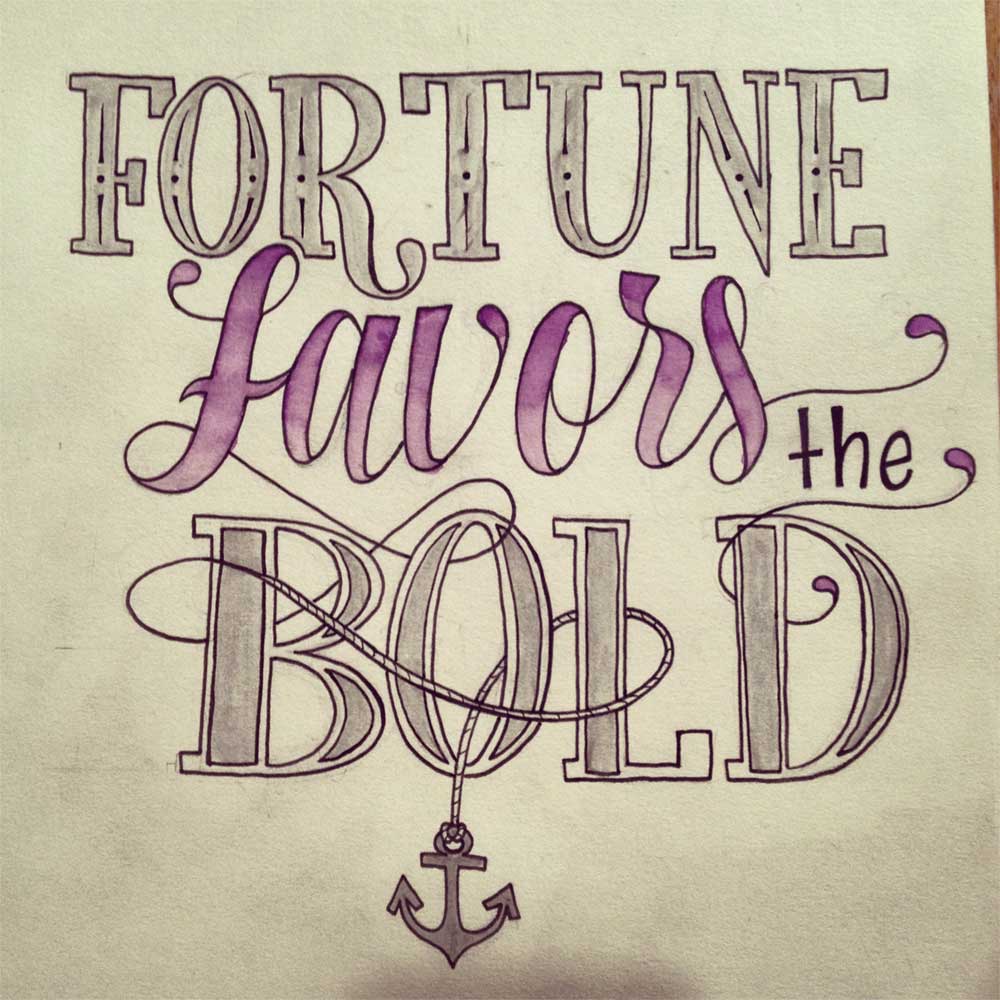 FORTUNE
favors
the
BOLD